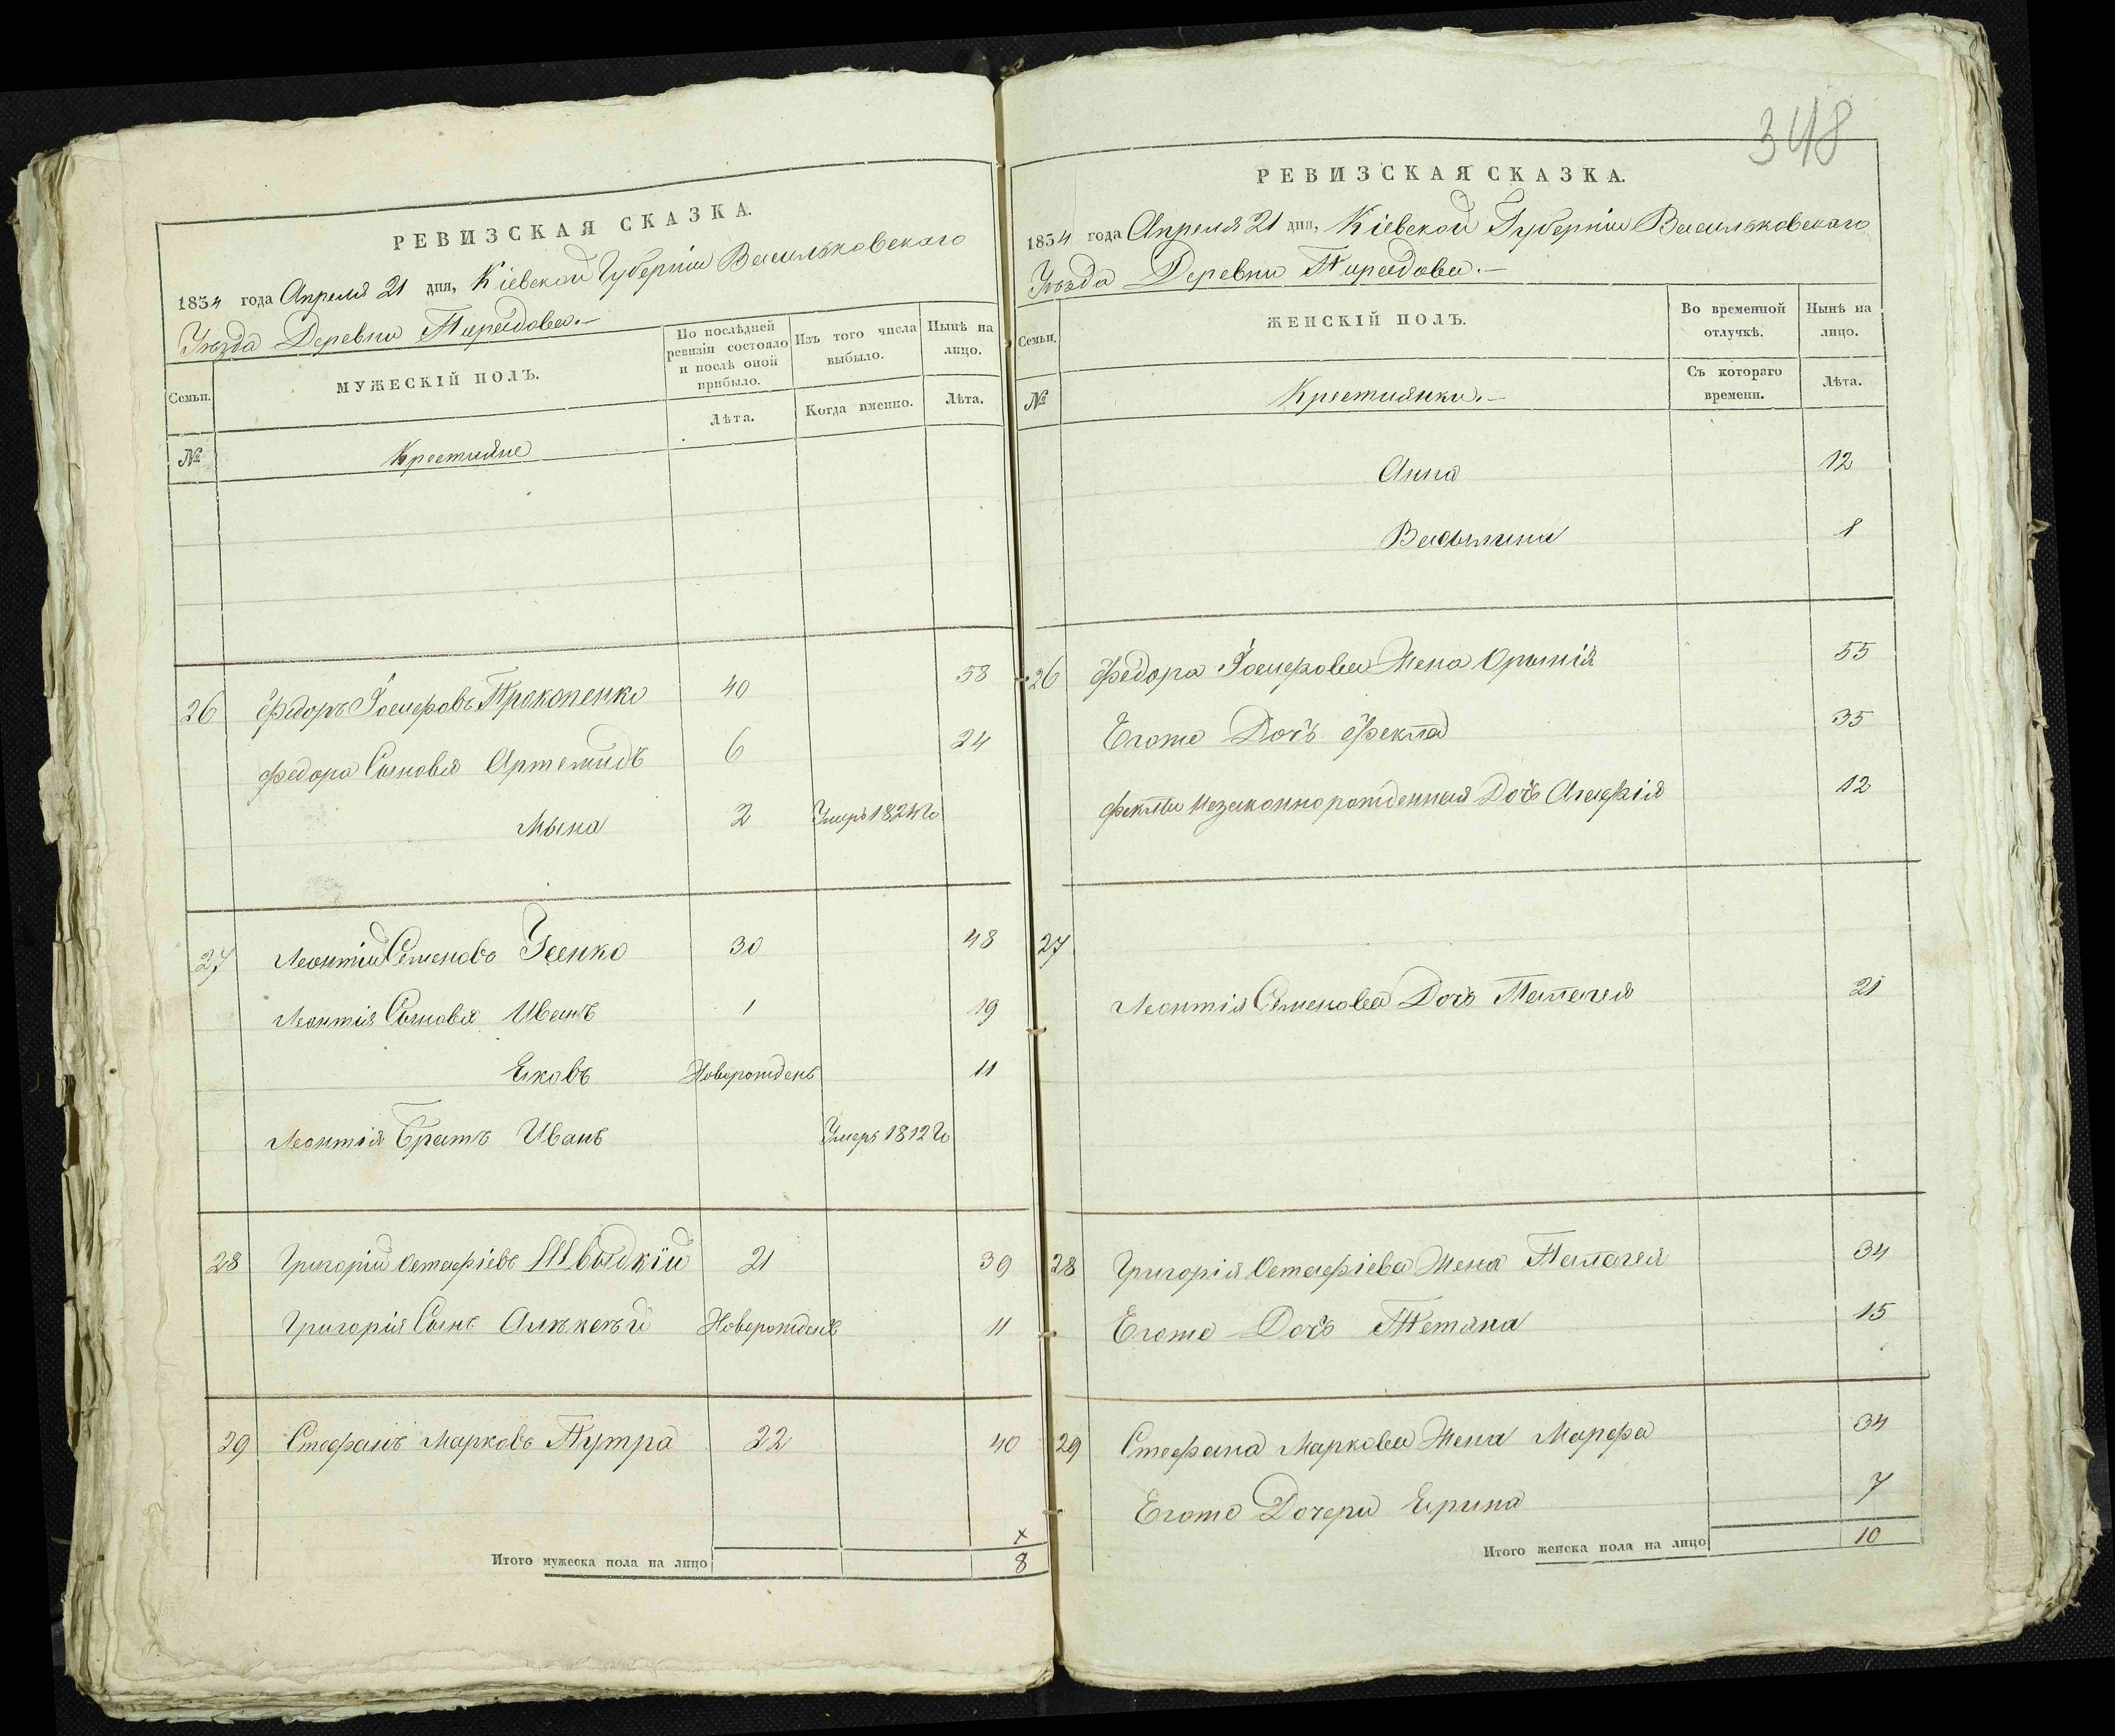 РЕВИЗСКАЯ СКАЗКА.
1834 года Апреля 21 дня, Кіевской Губерніи Васильковскаго
Уѣзда Деревни
Семьи.
МУЖЕСКІЙ ПОЛЪ.
По послѣдней ревизіи состояло и послѣ оной прибыло.
Изъ того числа выбыло.
Нынѣ на лицо.
Лѣта.
Когда именно.
Лѣта.
№
Крестьяне
26 Федоръ Іосифовъ Прокопенко 40 58
Федора Сыновья Артемидъ 6 24
Мына 2 Умеръ 1824 Го
27 Леонтій Семеновъ Усенко 30 48
Леонтія Сыновья Иванъ 1 19
Яковъ Новорожденъ 11
Леонтія Братъ Иванъ Умеръ 1812 Го
28 Григорій Остафіевъ Швыдкій 21 39
Григорія Сынъ Алѣксѣй Новорожденъ 11
29 Стефанъ Марковъ Путра 22 40
х
Итого мужеска пола на лицо 8
348
РЕВИЗСКАЯ СКАЗКА.
1834 года Апреля 21 дня, Кіевской Губерніи Васильковскаго
Уѣзда Деревни
Семьи.
ЖЕНСКІЙ ПОЛЪ.
Во временной отлучкѣ.
Нынѣ на лицо.
Съ котораго времени.
Лѣта.
№
Крестьянки.
Анна 12
Васылина 1
26 Федора Іосифова Жена Орынія 55
Егоже Дочь Фекла 35
Феклы Незаконнорожденная Дочь Агафія 12
27
Леонтія Семенова Дочь Палагея 21
28 Григорія Остафіева Жена Палагея 34
Егоже Дочь Тетяна 15
29 Стефана Маркова Жена Марфа 34
Егоже Дочери Ярина 7
Итого женска пола на лицо 10